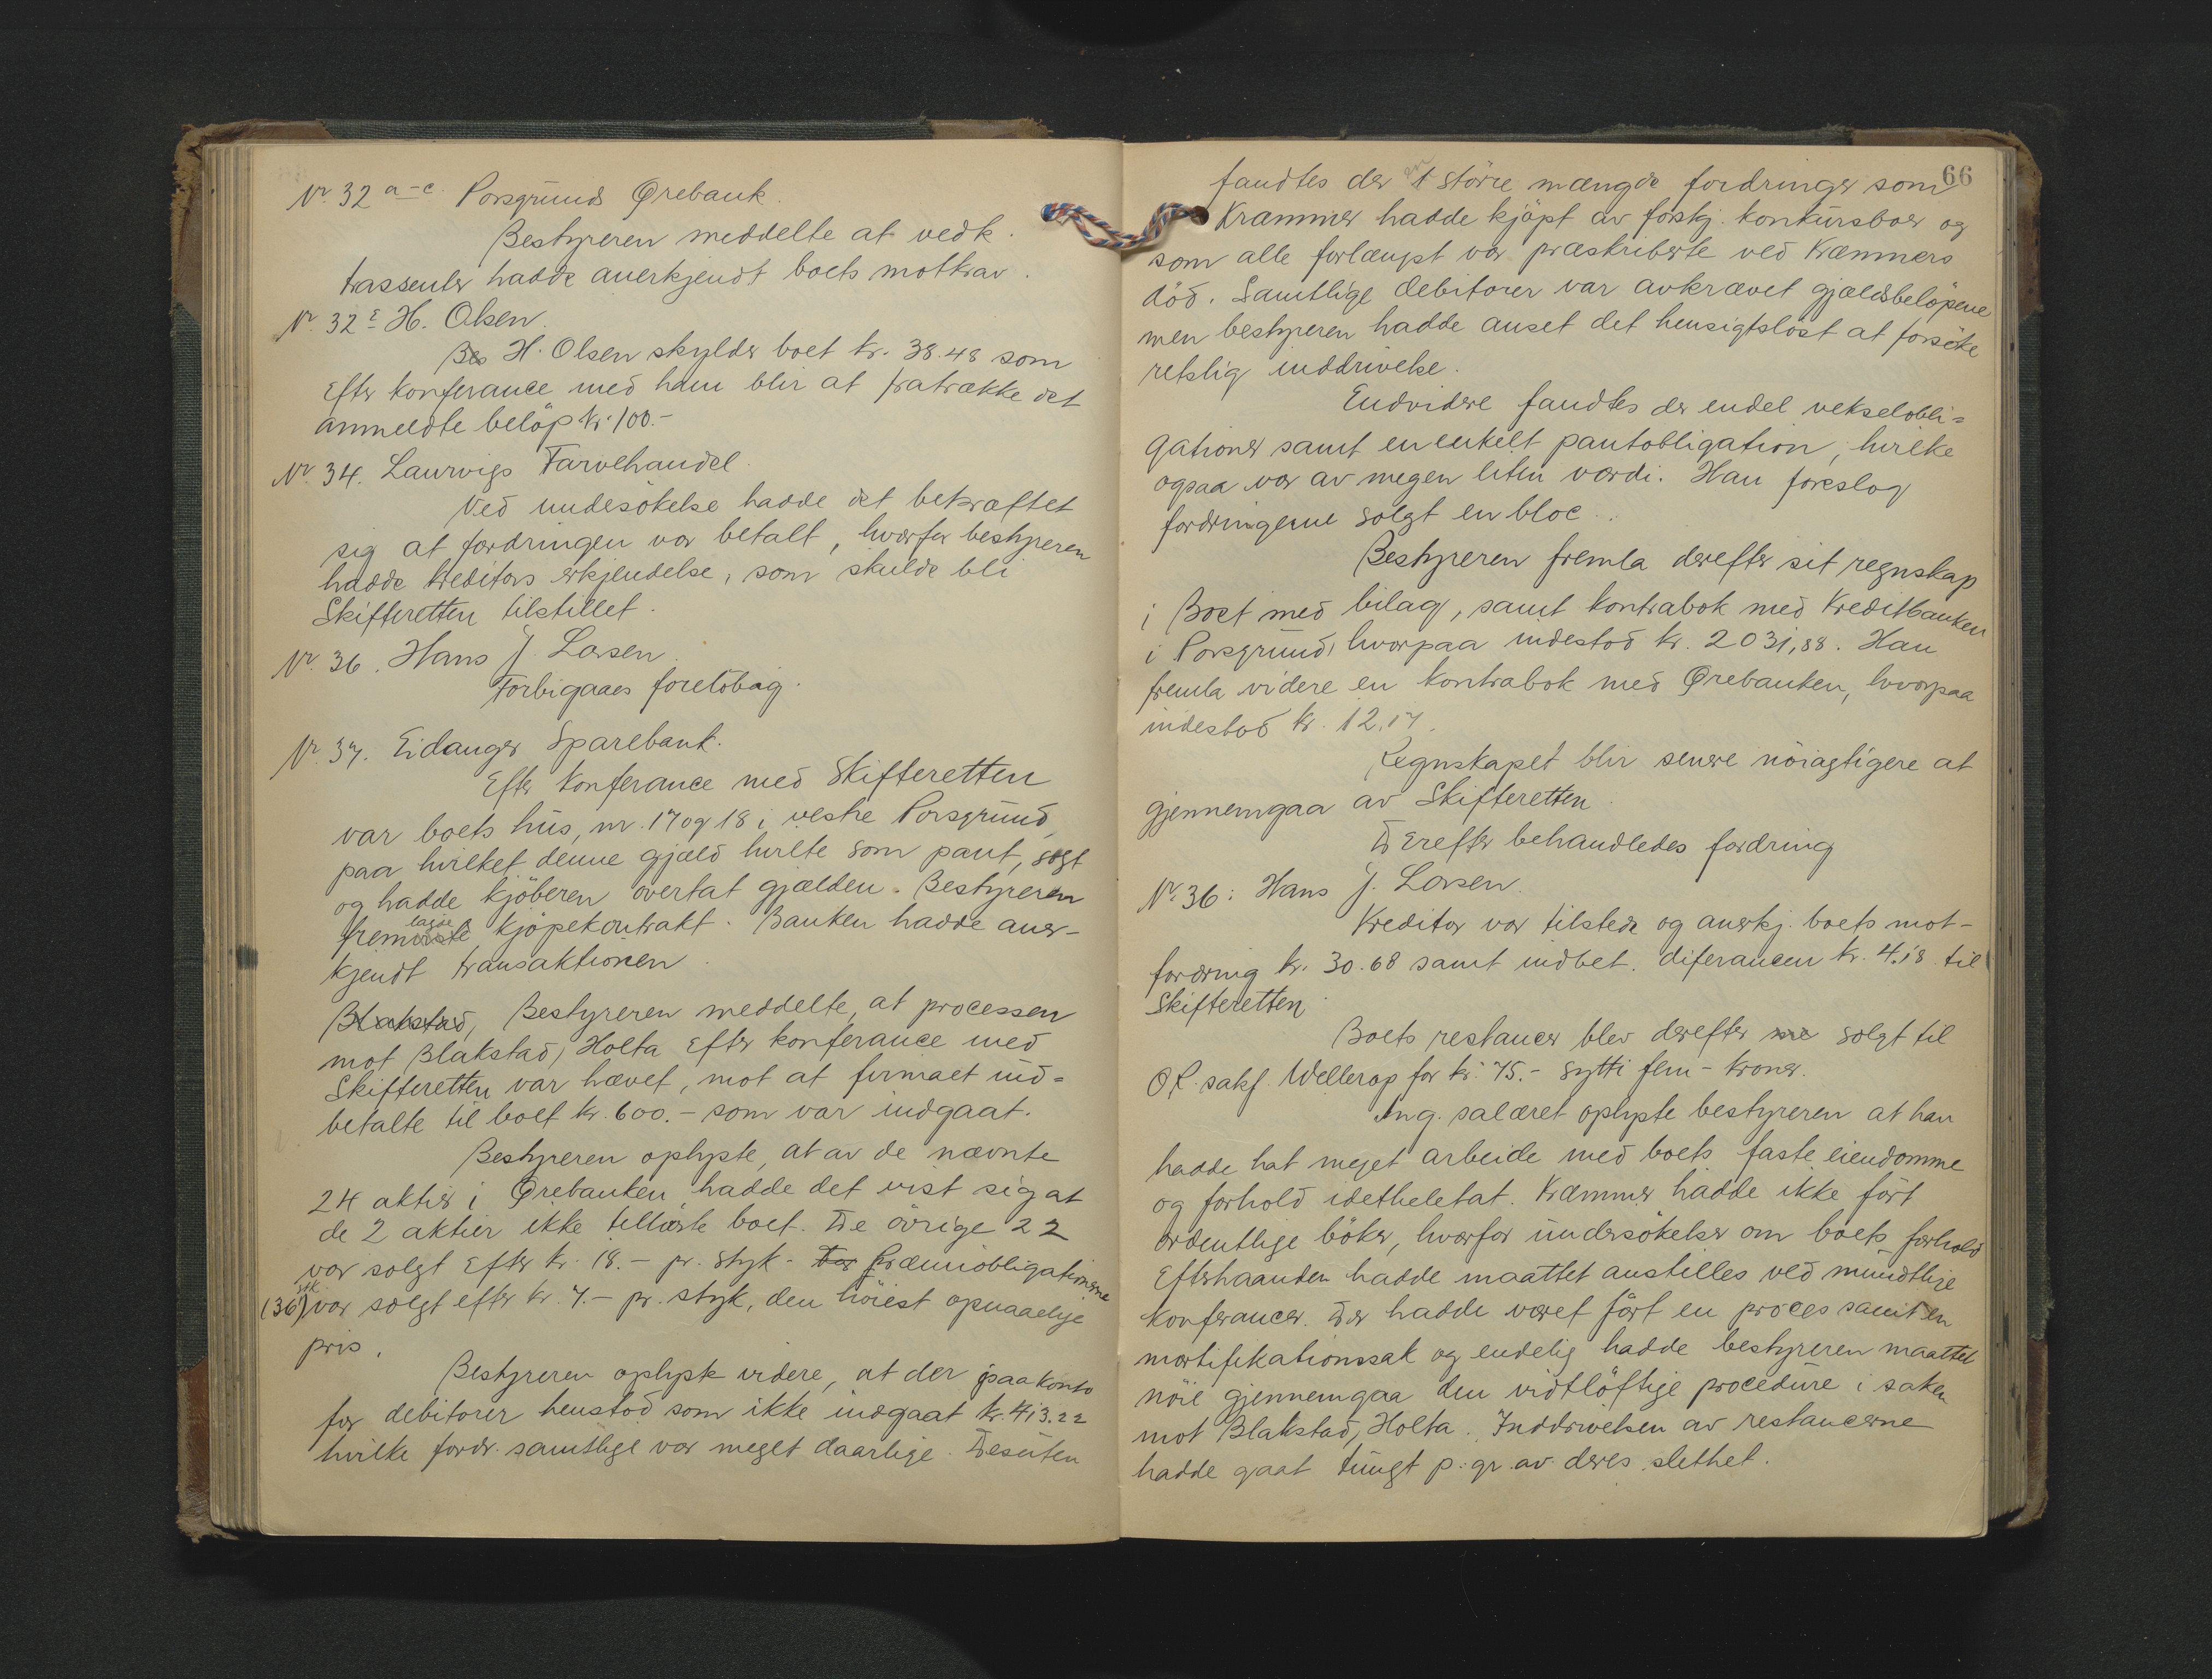 Nr. 32 a-c. Porsgrunds Ørebank.
Bestyreren meddelte at vedk.
trassenter hadde anerkjendt boets motkrav.
Nr. 32 E H. Olsen.
Bes H. Olsen skylder boet kr. 38.48 som
efter konferance med ham blir at fratrække det
anmeldte beløp kr. 100.-
Nr. 34. Laurvigs Farvehandel.
Ved undersökelse hadde det bekræftet
sig at fordringen var betalt, hvorfor bestyreren
hadde kreditors erkjendelse, som skulde bli
Skifteretten tilstillet.
Nr. 36. Hans J. Larsen.
Forbigaaes foreløbig.
Nr. 37. Eidanger Sparebank.
Efter konferance med Skifteretten
var boets hus, nr. 17 og 18 i vestre Porsgrund,
paa hvilket denne gjæld hvilte som pant, solgt
og hadde kjöberen overtat gjælden. Bestyreren
fremlagde kjöpekontrakt. Banken hadde aner-
kjendt transaktionen.
Blakstad, Bestyreren meddelte, at processen
mot Blakstad, Holta efter konferance med
Skifteretten var hævet, mot at firmaet ind-
betalte til boet kr. 600.- som var indgaat.
Bestyreren oplyste, at av de nævnte
24 aktier i Ørebanken hadde det vist sig at
de 2 aktier ikke tilhørte boet. De övrige 22
var solgt efter kr. 18.- pr. styk. Præmieobligationerne
(36 stk) var solgt efter kr. 7.- pr. styk, den höiest opnaaelige
pris.
Bestyreren oplyste videre, at der paa konto
for debitorer henstod som ikke indgaat kr. 413.22
hvilke fordr. samtlige var meget daarlige. Desuten
66
fandtes der en större mængde fordringer som
Kræmmer hadde kjöpt av forskj. konkursboer og
som alle forlængst var præskriberte ved Kræmmers
död. Samtlige debitorer var avkrævet gjældsbelöpene
men bestyreren hadde anset det hensigtslöst at forsöke
retslig inddrivelse.
Endvidere fandtes der endel vekselobli=
gationer samt en enkelt pantobligation, hvilke
ogsaa var av megen liten værdi. Han foreslog
fordringerne solgt en bloc.
Bestyreren fremla derefter sit regnskap
i Boet med bilag, samt kontrabok med Kreditbanken
i Porsgrund, hvorpaa indestod kr. 2031,88. Han
fremla videre en kontrabok med Ørebanken, hvorpaa
indestod kr. 12.17.
Regnskapet blir senere nöiagtigere at
gjennemgaa av Skifteretten.
Derefter behandledes fordring
Nr. 36: Hans J. Larsen.
Kreditor var tilstede og anerkj. boets mot-
fordring kr. 30.68 samt indbet. diferancen kr. 4.18 til
Skifteretten.
Boets restancer blev derefter solgt til
O.R. sakf. Wellerop for kr. 75.- sytti fem - kroner.
Ang. salæret oplyste bestyreren at han
hadde hat meget arbeide med boets faste eiendomme
og forhold idetheletat. Kræmmer hadde ikke fört
ordentlige böker, hvorfor undersökelser om boets forhold
efterhaanden hadde maattet anstilles ved mundtlige
konferancer. Der hadde været fört en proces samt en
mortifikationssak og endelig hadde bestyreren maattet
nöie gjennemgaa den vidtlöftige procedure i saken
mot Blakstad, Holta. Inddrivelsen av restancerne
hadde gaat tungt p. gr. av deres slethet.